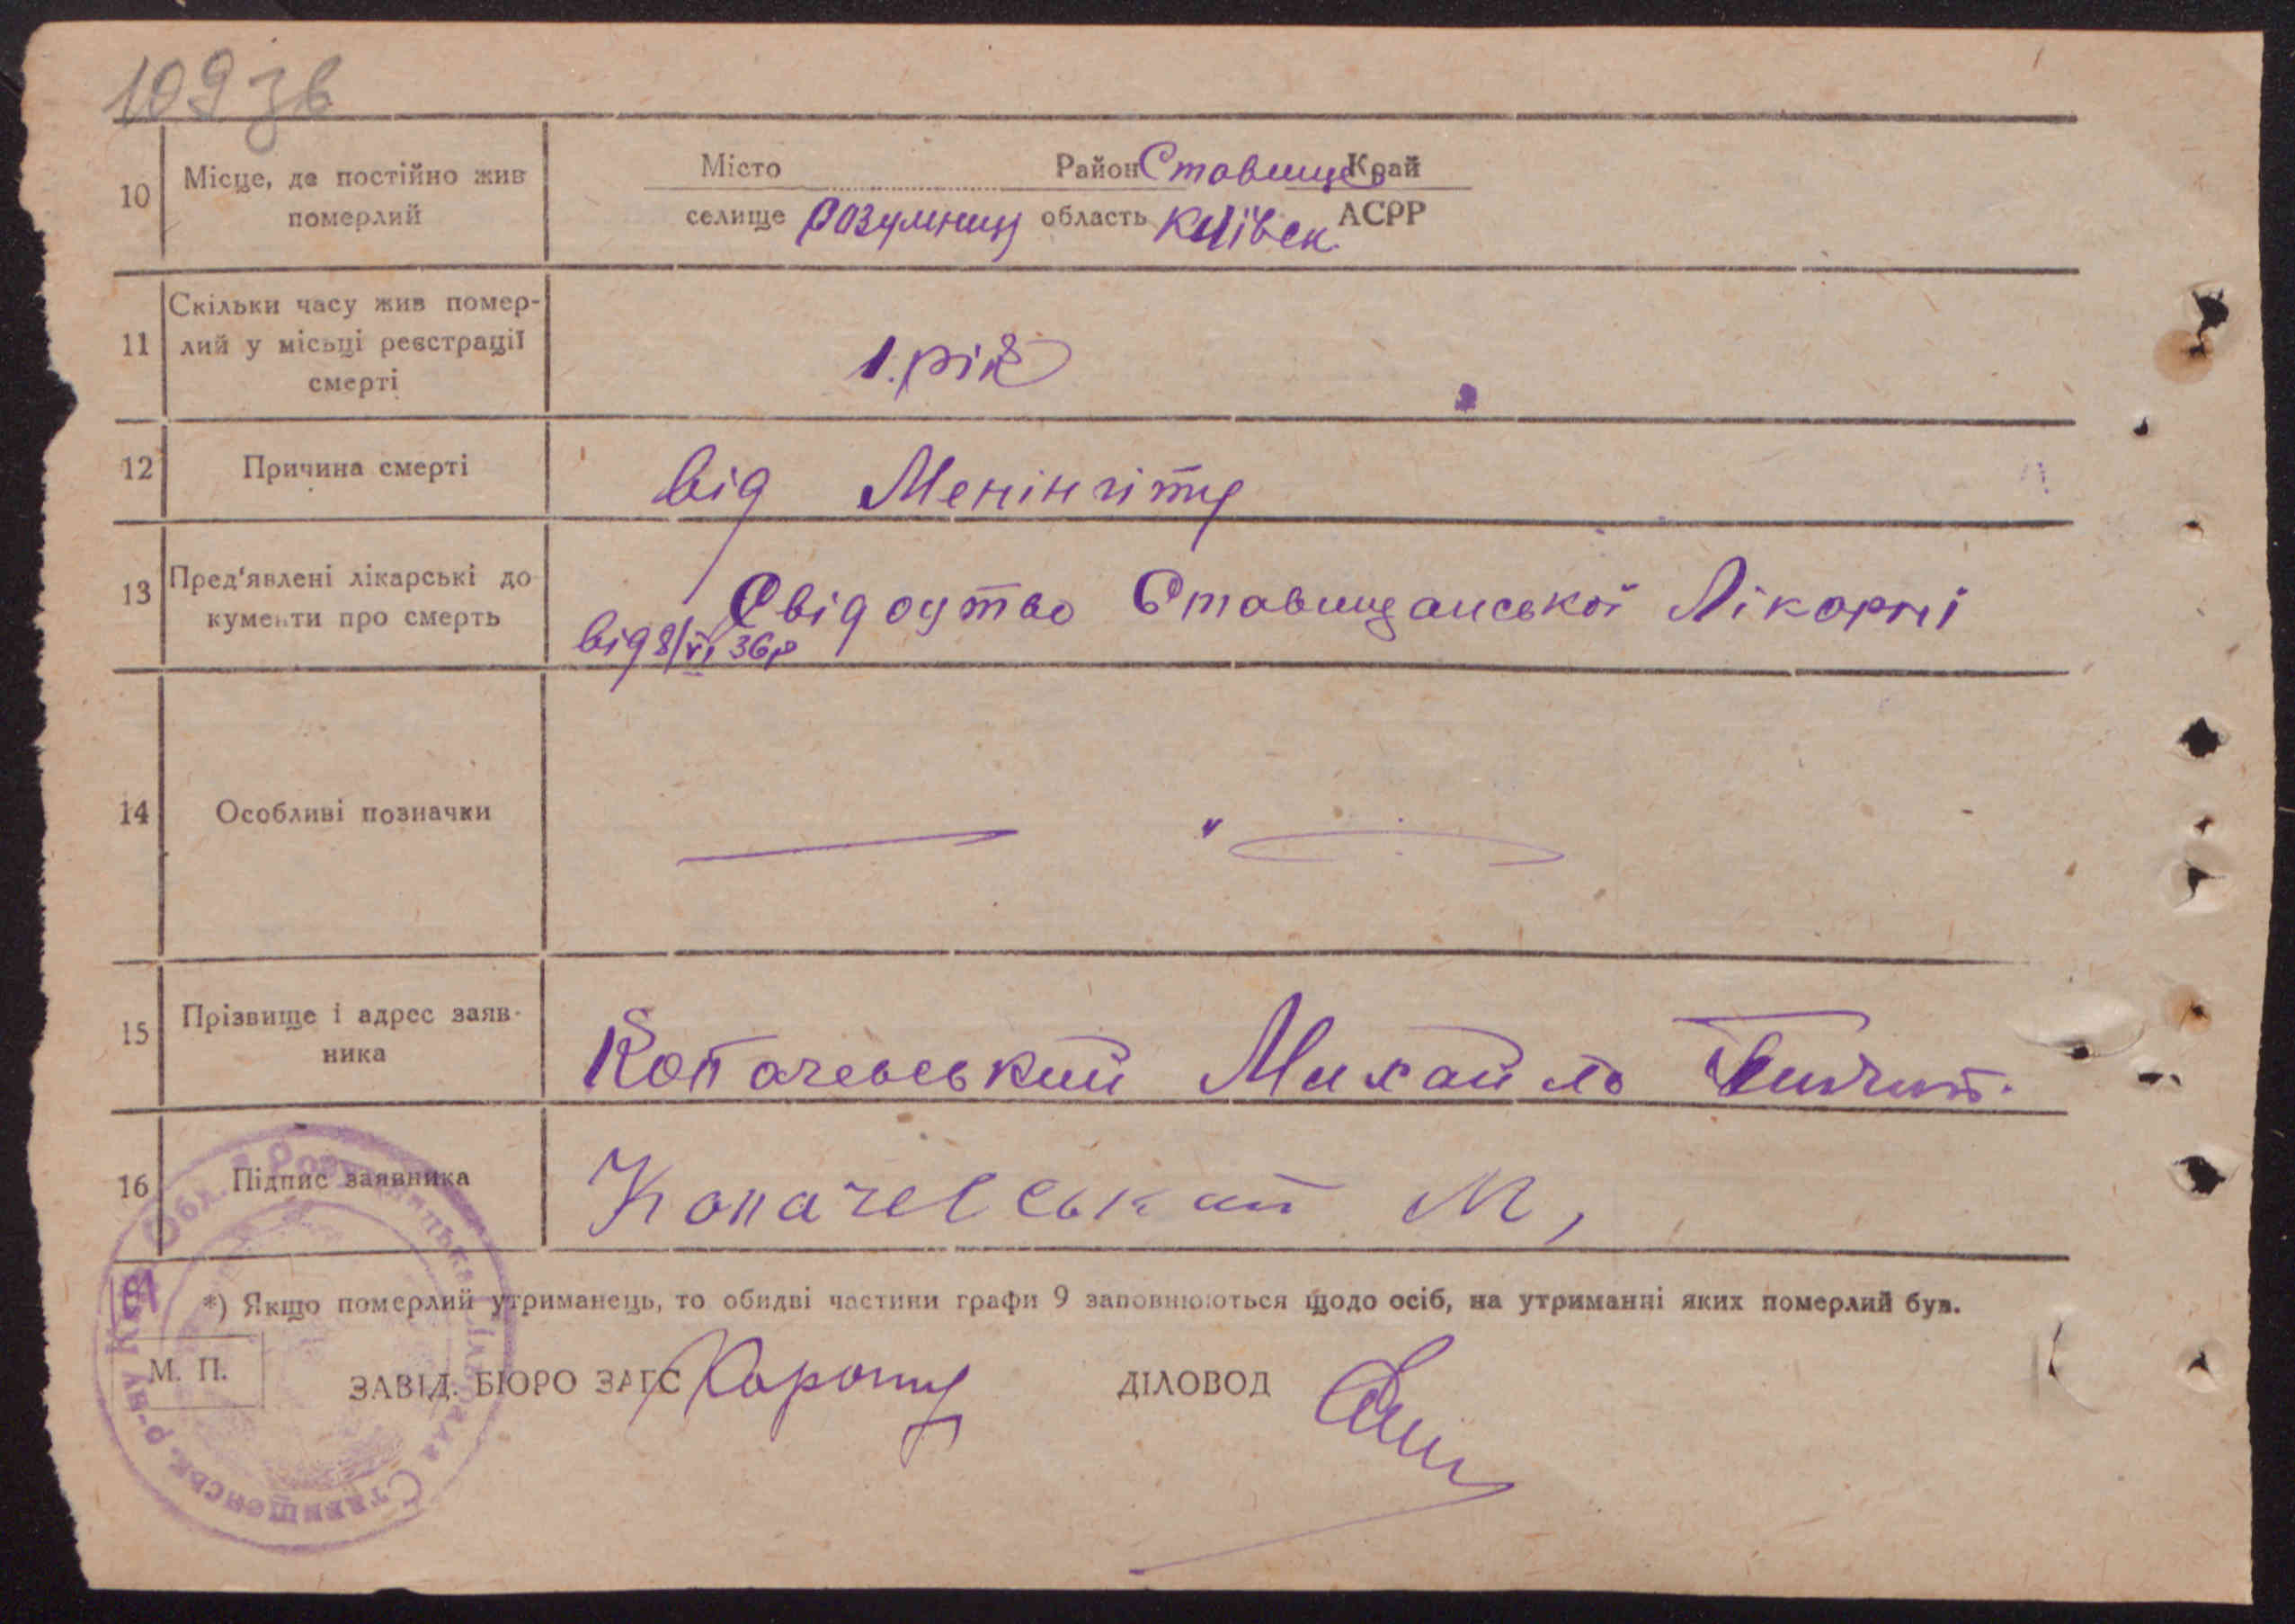 109 зв
10 Місце, де постійно жив померлий
Місто Район Ставище Край
селище Розумниці область Київськ. АСРР
11 Скільки часу жив помер-
лий у місьці реєстрації
смерті
1. рік
12 Причина смерті
від Менінгіту
13 Пред'явлені лікарські до
кументи про смерть
Свідоцтво Ставищанської Лікарні
від 8/VI 36р
14 Особливі позначки
15 Прізвище і адрес заяв-
ника
Копачевський Михайло
16 Підпис заявника
Копачевський М,
*) Якщо померлий утриманець, то обидві частини графи 9 заповнюються щодо осіб, на утриманні яких померлий був.
М. П.
ЗАВІД. БЮРО ЗАГС ДІЛОВОД